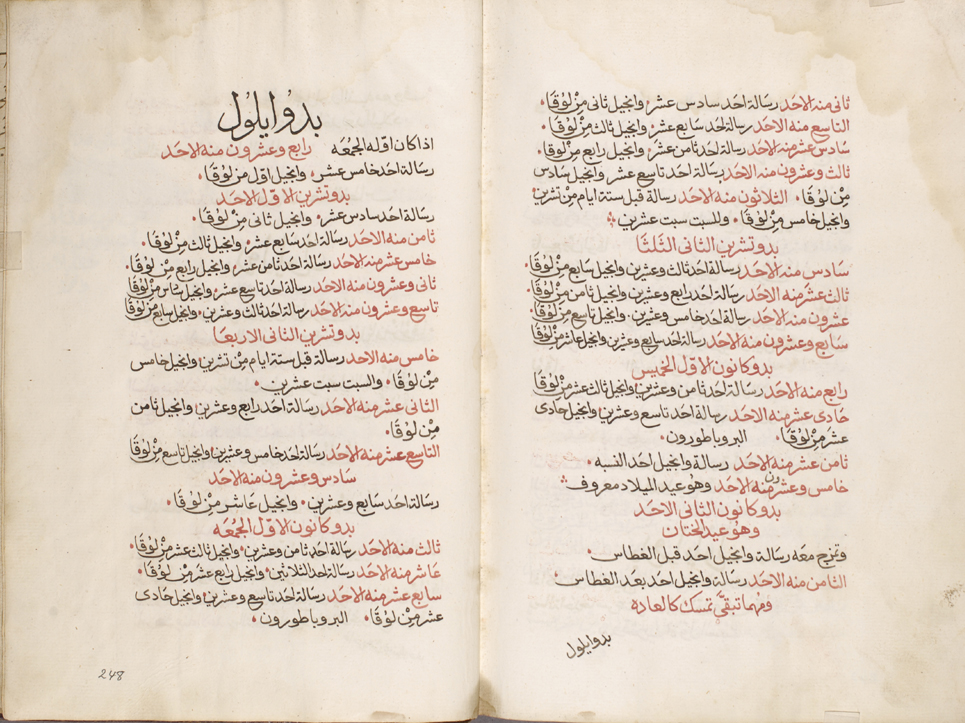 ثانى منه الاحد رسالة احد سادس عشر وانجيل ثانى من لوقا.
التاسع منه الاحد رسالة احد سابع عشر وانجيل ثالث من لوقا.
سادس عشر منه الاحد رسالة احد ثامن عشر وانجيل رابع من لوقا.
ثالث وعشرون منه الاحد رسالة احد تاسع عشر وانجيل سادس
من لوقا. الثلاثون منه الاحد رسالة قبل ستة ايام من تشرين
وانجيل خامس من لوقا. وللسبت سبت عشرين
بدو تشرين الثانى الثلثا
سادس منه الاحد رسالة احد ثالث وعشرين وانجيل سابع من لوقا.
ثالث عشر منه الاحد رسالة احد رابع وعشرين وانجيل ثامن من لوقا.
عشرون منه الاحد رسالة احد خامس وعشرين وانجيل تاسع من لوقا.
سابع وعشرون منه الاحد رسالة احد سابع وعشرين وانجيل عاشر من لوقا
بدو كانون الاول الخميس
رابع منه الاحد رسالة احد ثامن وعشرين وانجيل ثالث عشر من لوقا
حادى عشر منه الاحد رسالة احد تاسع وعشرين وانجيل حادى
عشر من لوقا. البروباطورون.
ثامن عشر منه الاحد رسالة وانجيل احد النسبه.
خامس وعشرون منه الاحد وهو عيد الميلاد معروف
بدو كانون الثانى الاحد
وهو عيد الختان
وتمزج معه رسالة وانجيل احد قبل الغطاس.
الثامن منه الاحد رسالة وانجيل احد بعد الغطاس.
ومهما تبقى تمسك كالعاده
بدو ايلول
بدو ايلول
اذا كان اوله الجمعه رابع وعشرون منه الاحد
رسالة احد خامس عشر. وانجيل اول من لوقا.
بدو تشرين الاول الاحد
رسالة احد سادس عشر. وانجيل ثانى من لوقا.
ثامن منه الاحد رسالة احد سابع عشر وانجيل ثالث من لوقا.
خامس عشر منه الاحد رسالة احد ثامن عشر وانجيل رابع من لوقا.
ثانى وعشرون منه الاحد رسالة احد تاسع عشر وانجيل سادس من لوقا
تاسع وعشرون منه الاحد رسالة احد ثالث وعشرين وانجيل سابع من لوقا
بدو تشرين الثانى الاربعا
خامس منه الاحد رسالة قبل ستة ايام من تشرين وانجيل خامس
من لوقا. والسبت سبت عشرين.
الثانى عشر منه الاحد رسالة احد رابع وعشرين وانجيل ثامن
من لوقا.
التاسع عشر منه الاحد رسالة احد خامس وعشرين وانجيل تاسع من لوقا
سادس وعشرون منه الاحد
رسالة احد سابع وعشرين. وانجيل عاشر من لوقا.
بدو كانون الاول الجمعه
ثالث منه الاحد رسالة احد ثامن وعشرين وانجيل ثالث عشر من لوقا.
عاشر منه الاحد رسالة احد الثلاثين وانجيل رابع عشر من لوقا.
سابع عشر منه الاحد رسالة احد تاسع وعشرين وانجيل حادى
عشر من لوقا. البروباطورون.
248